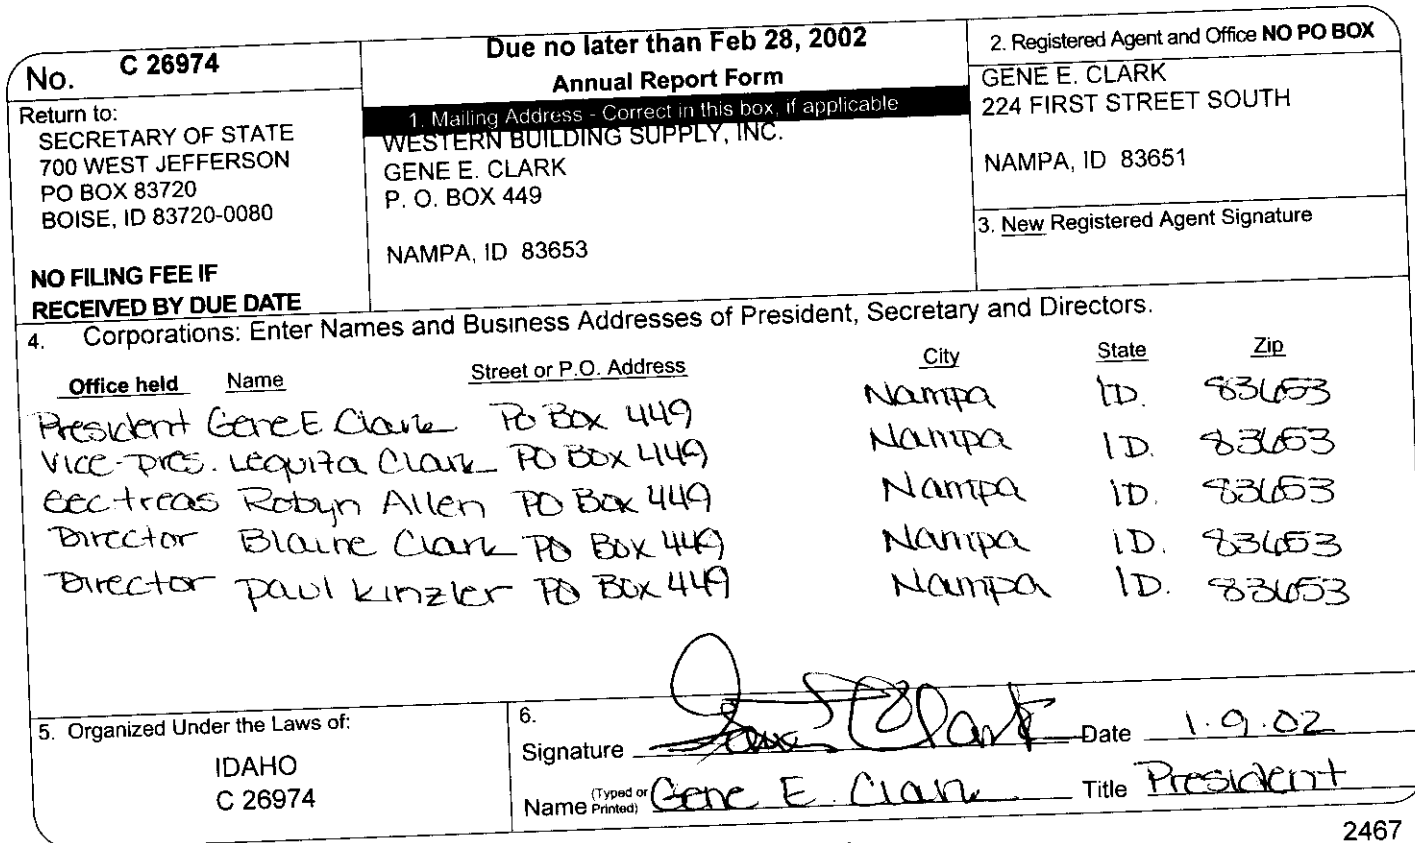 No. C 26974
Return to:
SECRETARY OF STATE
700 WEST JEFFERSON
PO BOX 83720
BOISE, ID 83720-0080
NO FILING FEE IF
RECEIVED BY DUE DATE
Due no later than Feb 28, 2002
Annual Report Form
1. Mailing Address - Correct in this box, if applicable
WESTERN BUILDING SUPPLY, INC.
GENE E. CLARK
P. O. BOX 449
NAMPA, ID 83653
2. Registered Agent and Office NO PO BOX
GENE E. CLARK
224 FIRST STREET SOUTH
NAMPA, ID 83651
3. New Registered Agent Signature
4. Corporations: Enter Names and Business Addresses of President, Secretary and Directors.
Office held Name Street or P.O. Address City State Zip
President Gene E Clark Po Box 449 Nampa ID. 83653
Vice-pres. Lequita Clark PO BOX 449 Nampa ID. 83653
sec treas Robyn Allen PO Box 449 Nampa ID. 83653
Director Blaine Clark PO Box 449 Nampa ID. 83653
Director paul kinzler PO Box 449 Nampa ID. 83653
5. Organized Under the Laws of:
IDAHO
C 26974
6.
Signature Gene E Clark Date 1.9.02
Name (Typed or Printed) Gene E. Clark Title President
2467